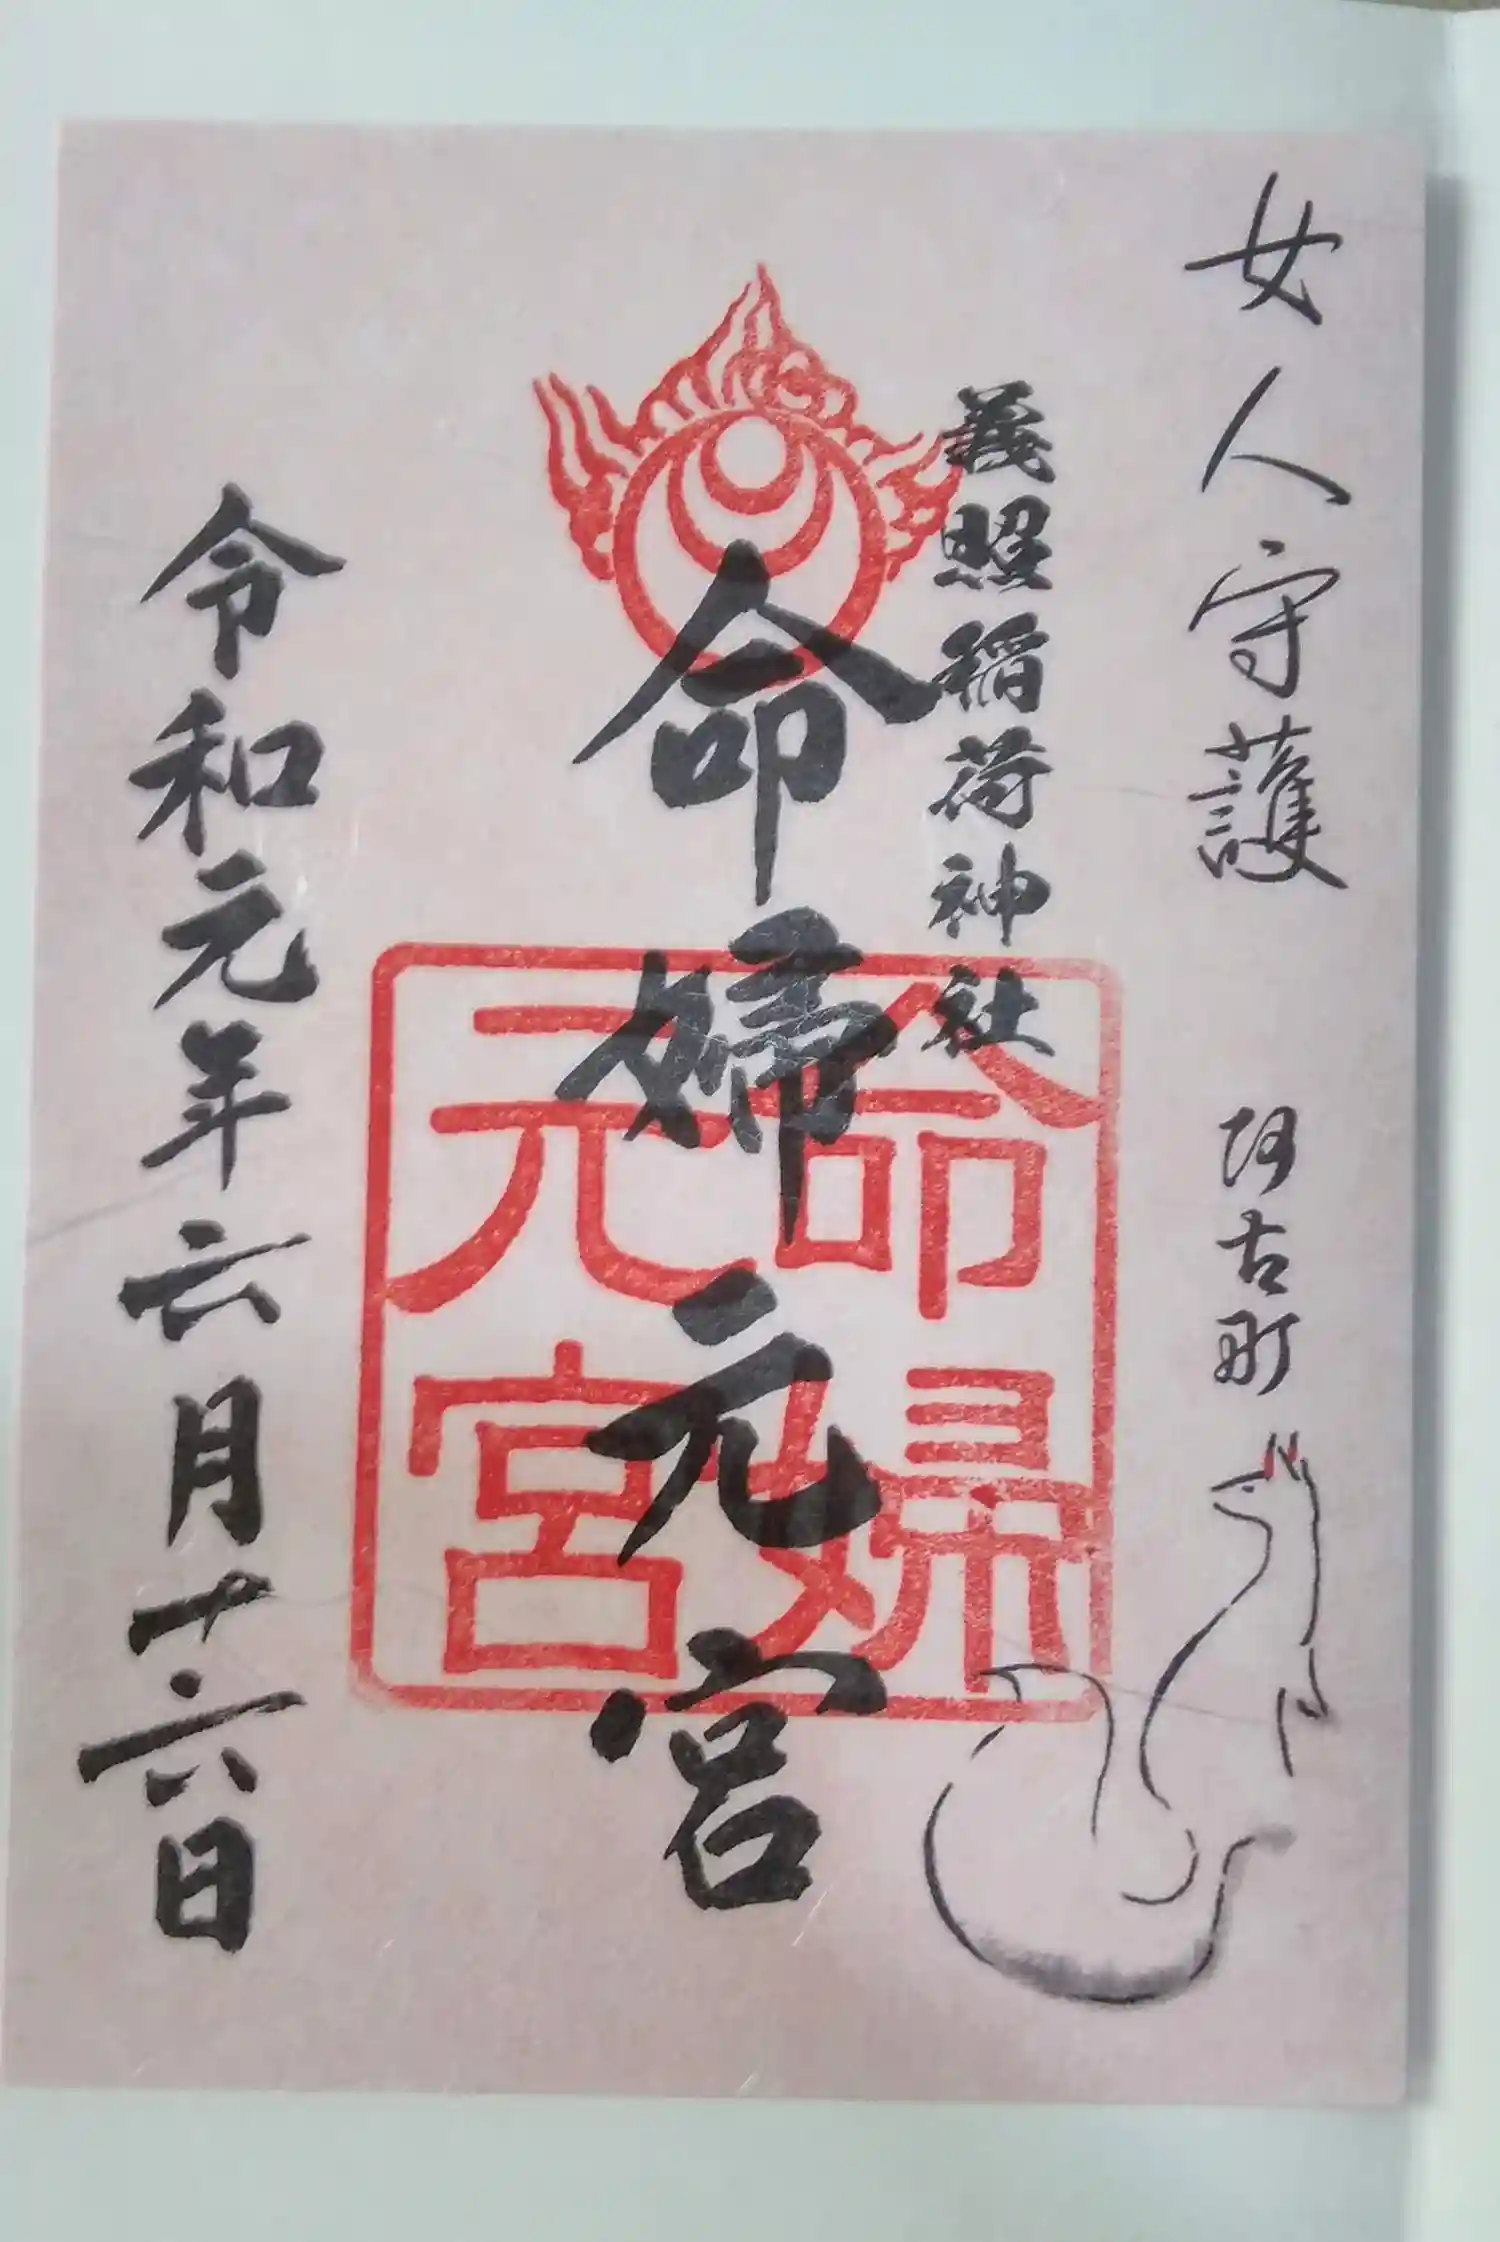 女人守護 阿古町
義照稲荷神社
命婦元宮
命婦
元宮
令和元年六月十六日